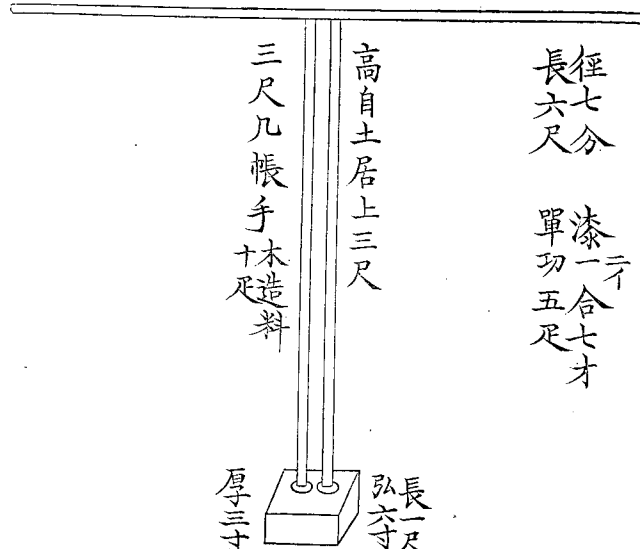 徑七分
長六尺
漆一合七才
二イ
單功五疋
高自土居上三尺
三尺几帳手木造料
十疋
長一尺
弘六寸
厚三寸